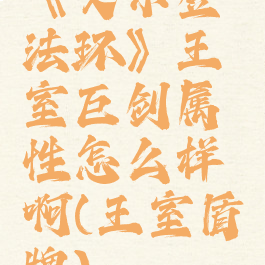 法环》王
室巨剑属
性怎么样
啊(王室盾
牌)